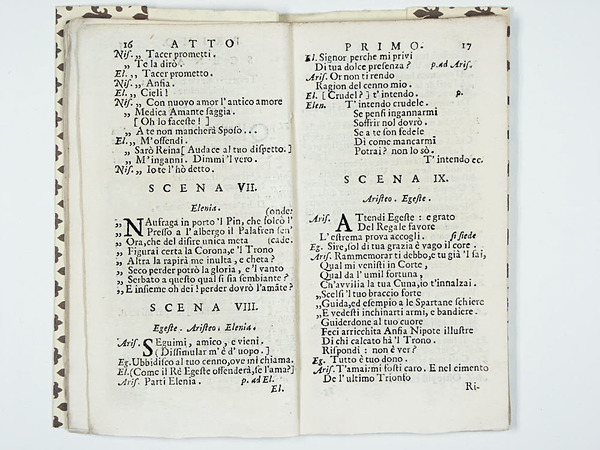 16 ATTO
Nis. „ Tacer prometti.
„ Te la dirò.
El. „ Tacer prometto.
Nis. „ Anfia.
El. „ Cieli!
Nis. „ Con nuovo amor l'antico amore
„ Medica Amante saggia.
[Oh lo facesse!]
„ A te non mancherà Sposo...
El. „ M'offendi.
„ Sarò Reina [Audace al tuo dispetto.]
„ M'inganni. Dimmi 'l vero.
Nis. „ Io te l'hò detto.
SCENA VII.
Elenia.
(onde
„ NAufraga in porto 'l Pin, che solcò l'
„ Presso a l'albergo il Palafren sen'
„ Ora, che del disire unica meta (cade.
„ Figurai certa la Corona, e 'l Trono
„ Altra la rapirà me inulta, e cheta?
„ Seco perder potrò la gloria, e 'l vanto
„ Serbato a questo qual si sia sembiante?
„ E insieme oh dei! perder dovrò l'amãte?
SCENA VIII.
Egeste. Aristeo. Elenia.
Aris. SEguimi, amico, e vieni.
(Dissimular m'è d'uopo.]
Eg. Ubbidisco al tuo cenno, ove mi chiama.
El. (Come il Rè Egeste offenderà, se l'ama?]
Aris. Parti Elenia. p. ad El.
El.
PRIMO. 17
El. Signor perche mi privi
Di tua dolce presenza? p. ad Aris.
Aris. Or non ti rendo
Ragion del cenno mio.
El. [Crudel?] t'intendo. p.
Elen. T'intendo crudele.
Se pensi ingannarmi
Soffrir nol dovrò.
Se a te son fedele
Di come mancarmi
Potrai? non lo sò.
T'intendo ec.
SCENA IX.
Aristeo. Egeste.
Aris. ATtendi Egeste: e grato
Del Regale favore
L'estrema prova accogli. si siede
Eg. Sire, sol di tua grazia è vago il core.
Aris. Rammemorar ti debbo, e tu già 'l sai,
Qual mi venisti in Corte,
Qual da l'umil fortuna,
Ch'avvilia la tua Cuna, io t'innalzai.
„ Scelsi 'l tuo braccio forte
„ Guida, ed esempio a le Spartane schiere
„ E vedesti inchinarti armi, e bandiere.
Guiderdone al tuo cuore
Feci arricchita Anfia Nipote illustre
Di chi calcato hà 'l Trono.
Rispondi: non è ver?
Eg. Tutto è tuo dono.
Aris. T'amai: mi fosti caro. E nel cimento
De l'ultimo Trionfo
Ri-